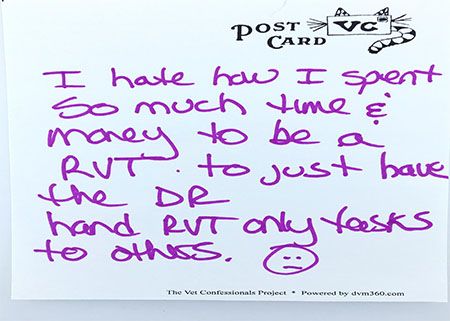 POST CARD
VC
I hate how I spent
so much time &
money to be a
RVT. to just have
the DR
hand RVT only tasks
to others.
The Vet Confessionals Project * Powered by dvm360.com